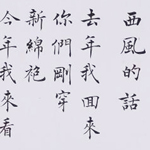 西風的話
去年我回來
你們剛穿
新綿袍
今年我來看